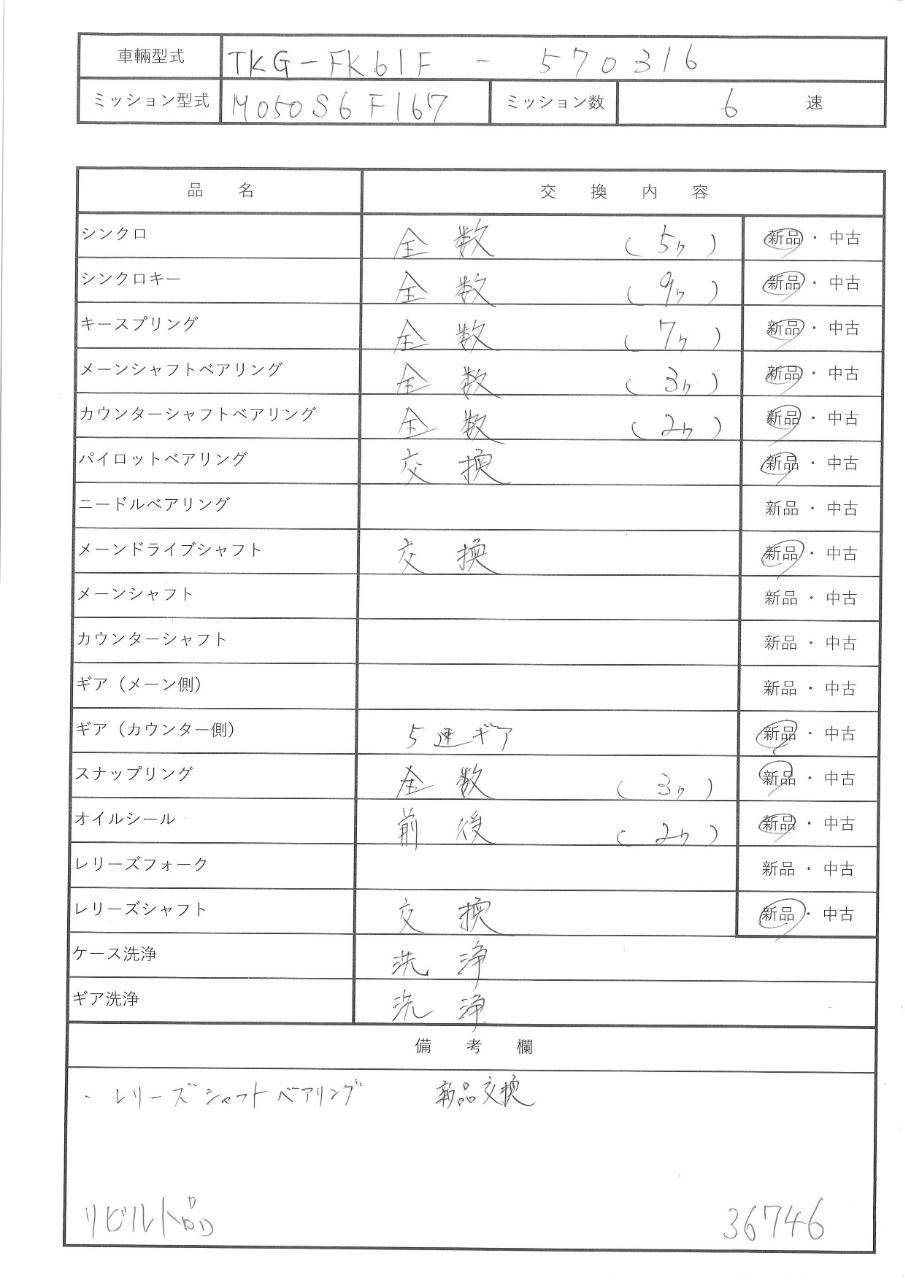 車輌型式 TKG-FK61F - 570316
ミッション型式 M050S6F167 ミッション数 6 速
品 名 交 換 内 容
シンクロ 全数 (5ヶ) 新品・中古
シンクロキー 全数 (9ヶ) 新品・中古
キースプリング 全数 (7ヶ) 新品・中古
メーンシャフトベアリング 全数 (3ヶ) 新品・中古
カウンターシャフトベアリング 全数 (2ヶ) 新品・中古
パイロットベアリング 交換 新品・中古
ニードルベアリング 新品・中古
メーンドライブシャフト 交換 新品・中古
メーンシャフト 新品・中古
カウンターシャフト 新品・中古
ギア（メーン側） 新品・中古
ギア（カウンター側） 5速ギア 新品・中古
スナップリング 全数 (3ヶ) 新品・中古
オイルシール 前後 (2ヶ) 新品・中古
レリーズフォーク 新品・中古
レリーズシャフト 交換 新品・中古
ケース洗浄 洗浄
ギア洗浄 洗浄
備 考 欄
・レリーズシャフトベアリング 新品交換
リビルト 36746